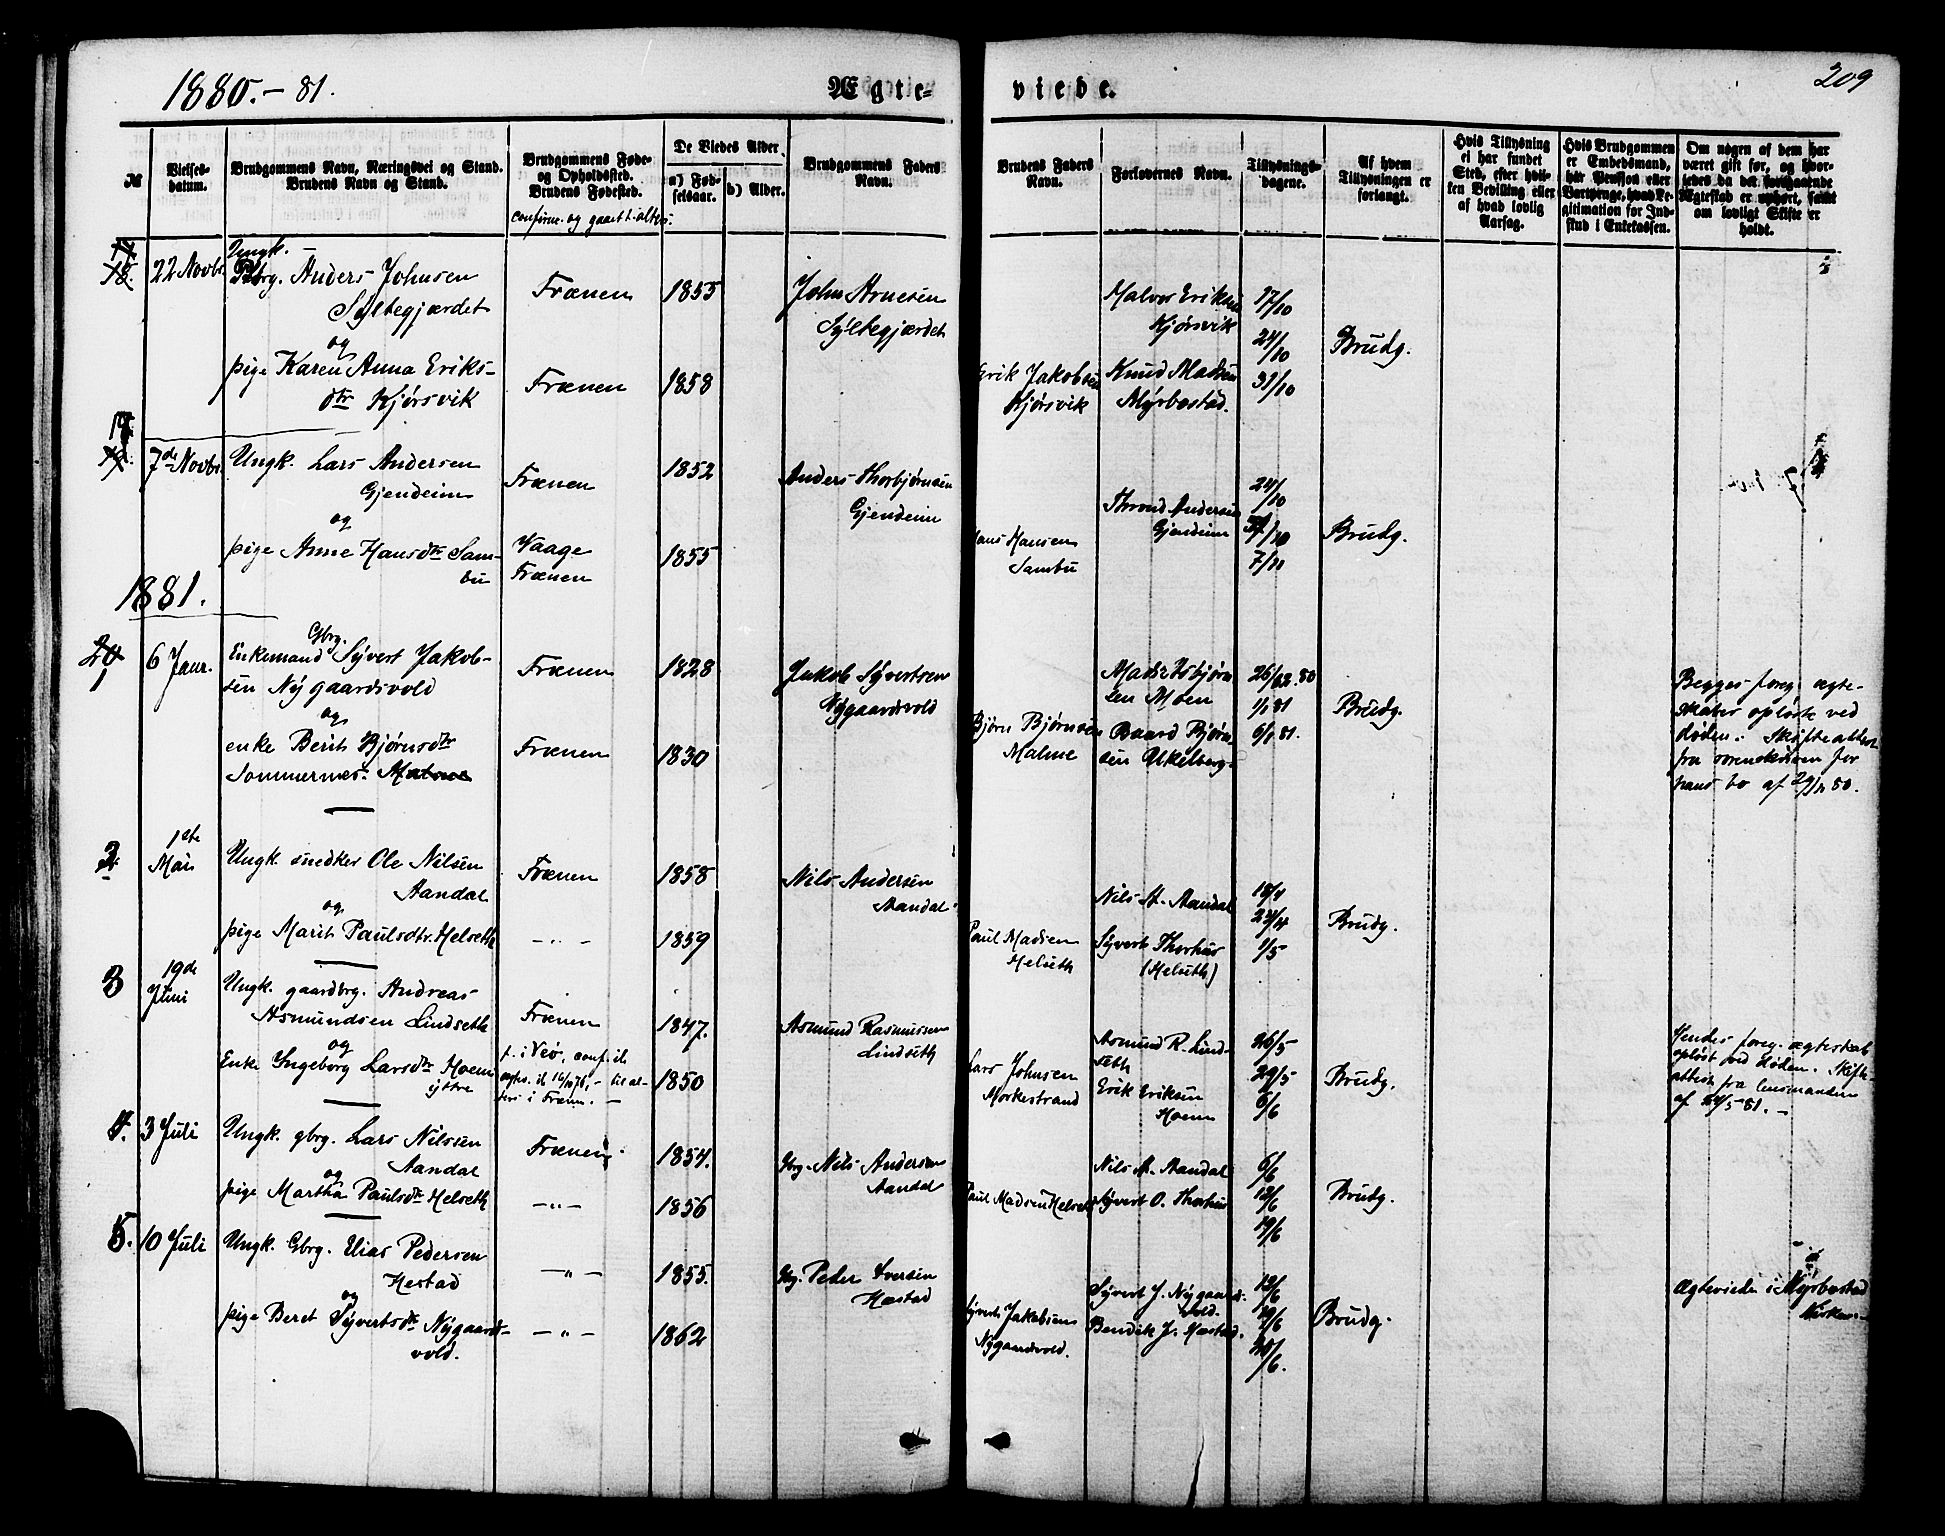 1880.-81.
Ægte-
viede.
209
№
Vielses-
datum.
Brudgommens Navn, Næringsvei og Stand.
Brudens Navn og Stand.
Brudgommens Føde-
og Opholdssted.
Brudens Fødested.
confirm. og gaaet t. alters:
De Viedes Alder
a) Fød-
selsaar.
b) Alder.
Brudgommens Faders
Navn.
Brudens Faders
Navn.
Forlovernes Navn.
Tillysnings-
dagene.
Af hvem
Tillysningen er
forlangt.
Hvis Tillysning
ei har fundet
Sted, efter hvil-
ken Bevilling eller
af hvad lovlig
Aarsag.
Hvis Brudgommen
er Embedsmand,
har Pension eller
Vartpenge, hvad Le-
gitimation for Ind-
skud i Enkekassen.
Om nogen af dem har
været gift før, og hvor-
ledes da det foregaaende
Ægteskab er ophørt, samt
om lovligt Skifte er
holdt.
18.
22 Novbr.
Ungk.
Gbrg. Anders Johnsen
Syltegjærdet
og
pige Karen Anna Eriks-
dtr Kjørsvik
Frænen
Frænen
1855
1858
John Arnesen
Syltegjærdet
Erik Jakobsen
Kjørsvik
Halvor Eriksen
Kjørsvik
Knud Madsen
Myrbostad.
17/10
24/10
31/10
Brudg.
19.
7de Novbr
Ungk. Lars Andersen
Gjendeim
og
pige Anne Hansdtr Sam-
bu
Frænen
Vaage
Frænen
1852
1855
Anders Thorbjørnsen
Gjendeim
Hans Hansen
Sambu
Thrond Andersen
Gjendeim
24/10
31/10
7/11
Brudg.
1881.
1
6 Janr.
Gbrg.
Enkemand Syvert Jakob-
sen Nygaardsvold
og
enke Berit Bjørnsdtr
Sommernes Malme
Frænen
Frænen
1828
1830
Jakob Syvertsen
Nygaardsvold
Bjørn Bjørnsen
Malme
Mads Esbjørn
sen Moen
Baard Bjørn
sen Ukelberg.
26/12.80
1/1 81
6/1 81.
Brudg.
Begges foreg. ægte-
skaber opløste ved
døden. Skifteattest
fra sorenskriven for
hans bo af 29/11 80.
2
1ste
Mai
Ungk. snedker Ole Nilsen
Aandal
og
pige Marit Paulsdtr. Helseth
Frænen
- " -
1858
1859
Nils Andersen
Aandal
Paul Madsen
Helseth
Nils A. Aandal
Syvert Thorhus
(Helseth)
18/4
24/4
1/5
Brudg.
3
19de
Juni
Ungk. gaardbrg. Andreas
Asmundsen Lindseth
og
Enke Ingeborg Larsdtr Hoem
ytre
Frænen
f. i Veø, conf. ib.
til al-
ters i Fræn. -
1847.
1850
Asmund Rasmussen
Lindseth
Lars Johnsen
Morkestrand
Asmund R. Lind-
seth
Erik Eriksen
Hoem
26/5
29/5
6/6
Brudg.
Hendes foreg. ægteskab
opløst ved døden. Skifte-
attest fra lensmanden
af 24/5 81. -
4.
3 Juli
Ungk. gbrg. Lars Nilsen
Aandal
og
pige Martha Paulsdtr Helseth
Frænen
- " -
1854.
1856
Gbrg. Nils Andersen
Aandal
Paul Madsen Helseth
Nils A. Aandal
Syvert O. Thorhus
6/6
12/6
19/6
Brudg.
5.
10 Juli
Ungk. Gbrg. Elias Pedersen
Hestad
og
pige Beret Syvertsdtr Nygaards-
vold.
- " -
- " -
1855.
1862
Gbrg. Peder Iversen
Hæstad
Syvert Jakobsen
Nygaardsvold.
Syvert J. Nygaards-
vold.
Bendik J. Hæstad.
12/6
19/6
26/6.
Brudg.
Ægteviede i Myrbostad
Kirke. -